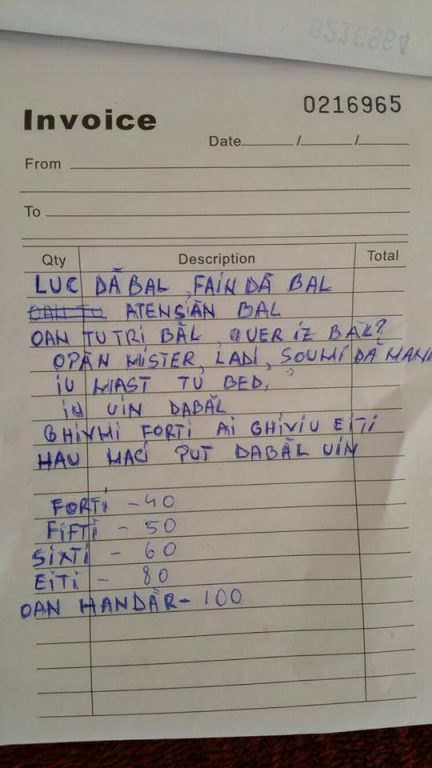 0216964
0216965
Invoice
Date / /
From
To
Qty Description Total
LUC DĂ BAL, FAIN DĂ BAL
ATENȘĂN BAL
OAN TU TRI BĂL, QUER IZ BĂL?
OPĂN MISTER, LADI, SOUMI DĂ MANI
IU MAST TU BED,
IU UIN DABĂL
GHIVMI FORTI AI GHIVIU EITI
HAU MACI PUT DABĂL UIN
FORTI - 40
FIFTI - 50
SIXTI - 60
EITI - 80
OAN HANDĂR - 100